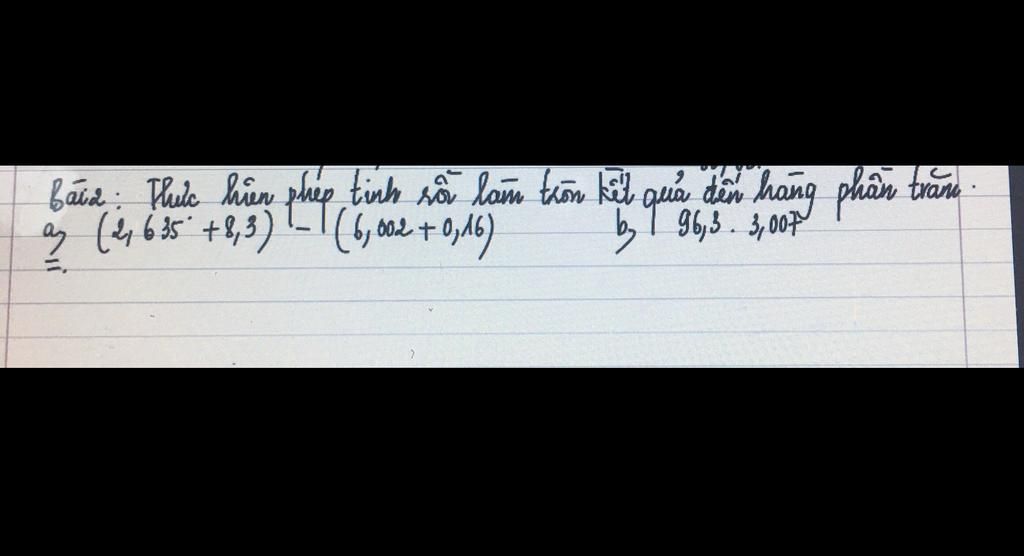 Bài 2: Thực hiện phép tính rồi làm tròn kết quả đến hàng phần trăm.
a, (2,635 + 8,3) - (6,002 + 0,16) b, 96,3 . 3,007
=.